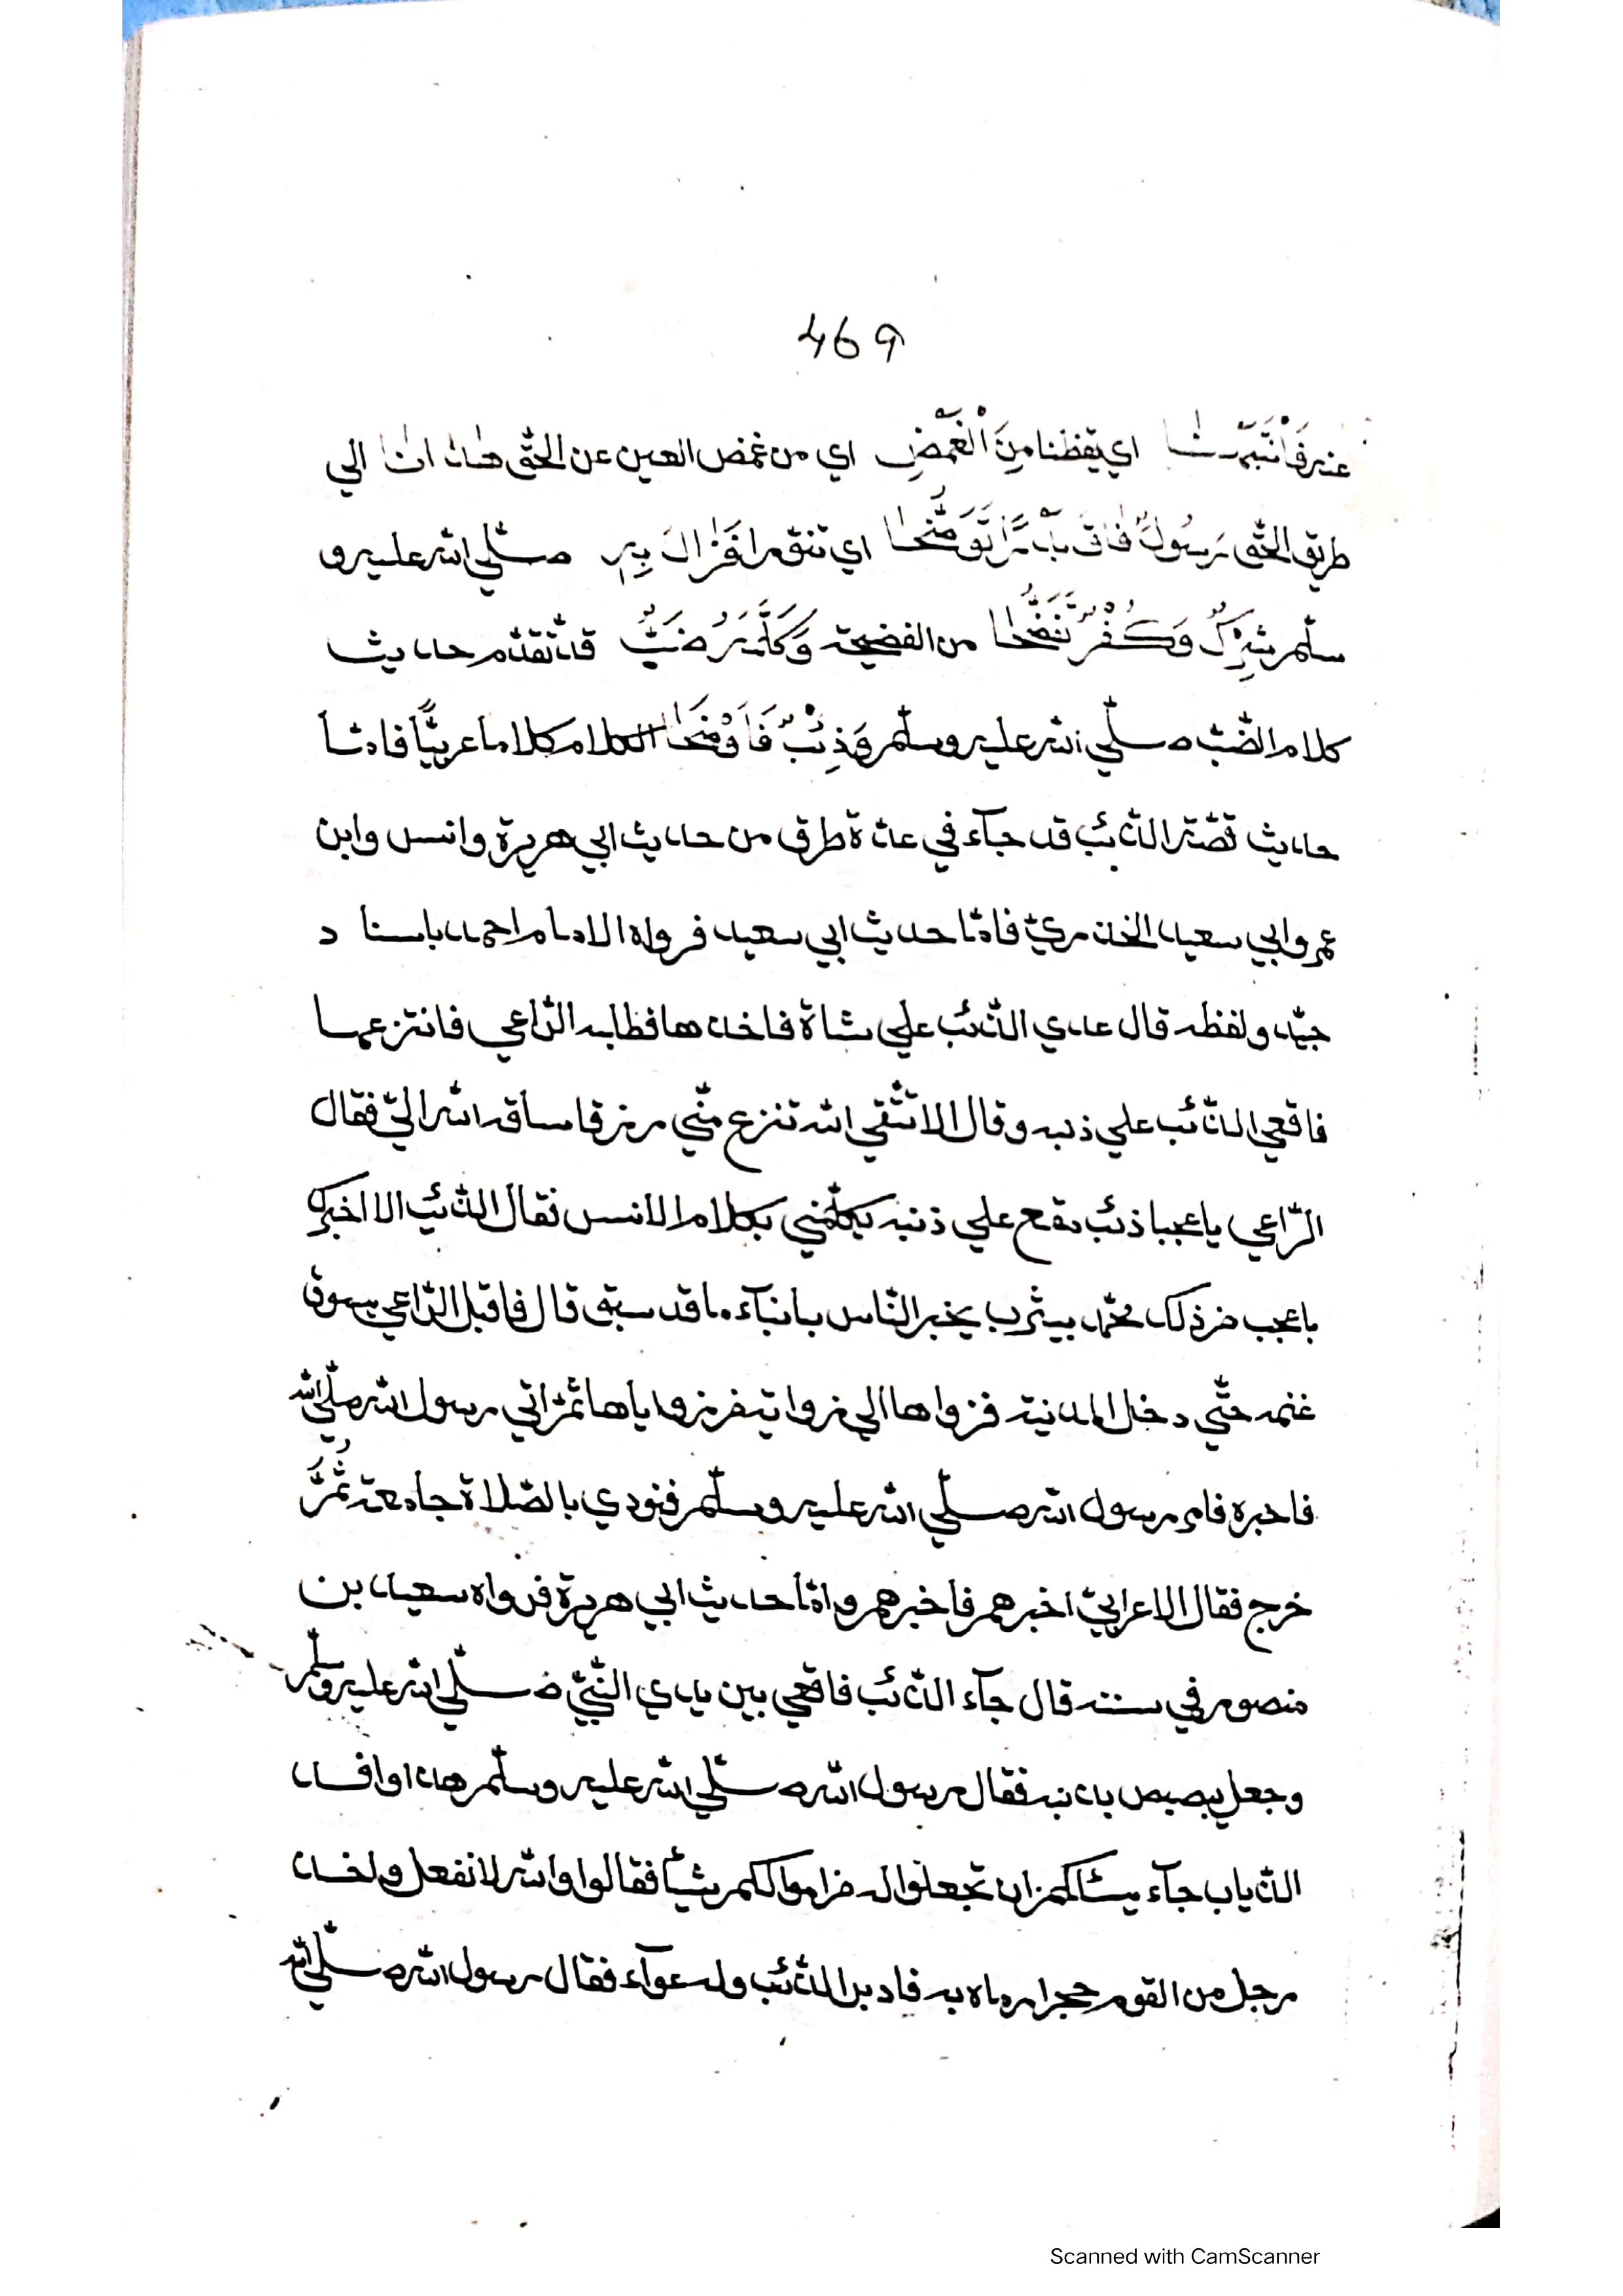 469
عنه فَانْتَبَهْنَا اي يقظنا مِنَ الْغَمْضِ اي من غمض العين عن الحقّ هدانا الي
طريق الحقّ رَسُولٌ فَاقَ اي تفوّق صلّي الله عليه و
سلّم شِرْكٌ وَكُفْرٌ من الفضيحة وَكَلَّمَهُ ضَبٌّ قد تقدّم حديث
كلام الضّبّ صلّي الله عليه وسلّم وَذِئْبٌ فَاَوْضَحَا الكلام كلاما عربيًّا فامّا
حديث قصّة الذّئب قد جآء في عدّة طرق من حديث ابي هريرة وانس وابن
عمر وابي سعيد الخدريّ فامّا حديث ابي سعيد فرواه الامام احمد باسناد
جيّد ولفظه قال عدي الذّئب علي شاة فاخذها فطلبه الرّاعي فانتزعها
فاقعي الذّئب علي ذنبه وقال الا تتّقي الله تنزع منّي رزقا ساقه الله اليّ فقال
الرّاعي يا عجبا ذئب مقع علي ذنبه يكلّمني بكلام الانس فقال الذّئب الا اخبرك
باعجب من ذلك محمّد بيثرب يخبر النّاس بانبآء ما قد سبق قال فاقبل الرّاعي يسوق
غنمه حتّي دخل المدنية فزواها الي زواية من زواياها ثمّ اتي رسول الله صلّي الله
فاخبره فامر رسول الله صلّي الله عليه وسلّم فنودي بالصّلاة جامعة ثُمَّ
خرج فقال الاعرابيّ اخبرهم فاخبرهم وامّا حديث ابي هريرة فرواه سعيد بن
منصور في سننه قال جآء الذّئب فاقعي بين يدي النّبيّ صلّي الله عليه وسلّم
وجعل يبصبص بذنبه فقال رسول الله صلّي الله عليه وسلّم هذا وافد
الذّياب جآء يسئالكم ان تجعلوا له من اموالكم شيئًا فقالوا والله لا نفعل واخذ
رجل من القوم حجرا رماه به فادبر الذّئب وله عوآء فقال رسول الله صلّي الله
Scanned with CamScanner